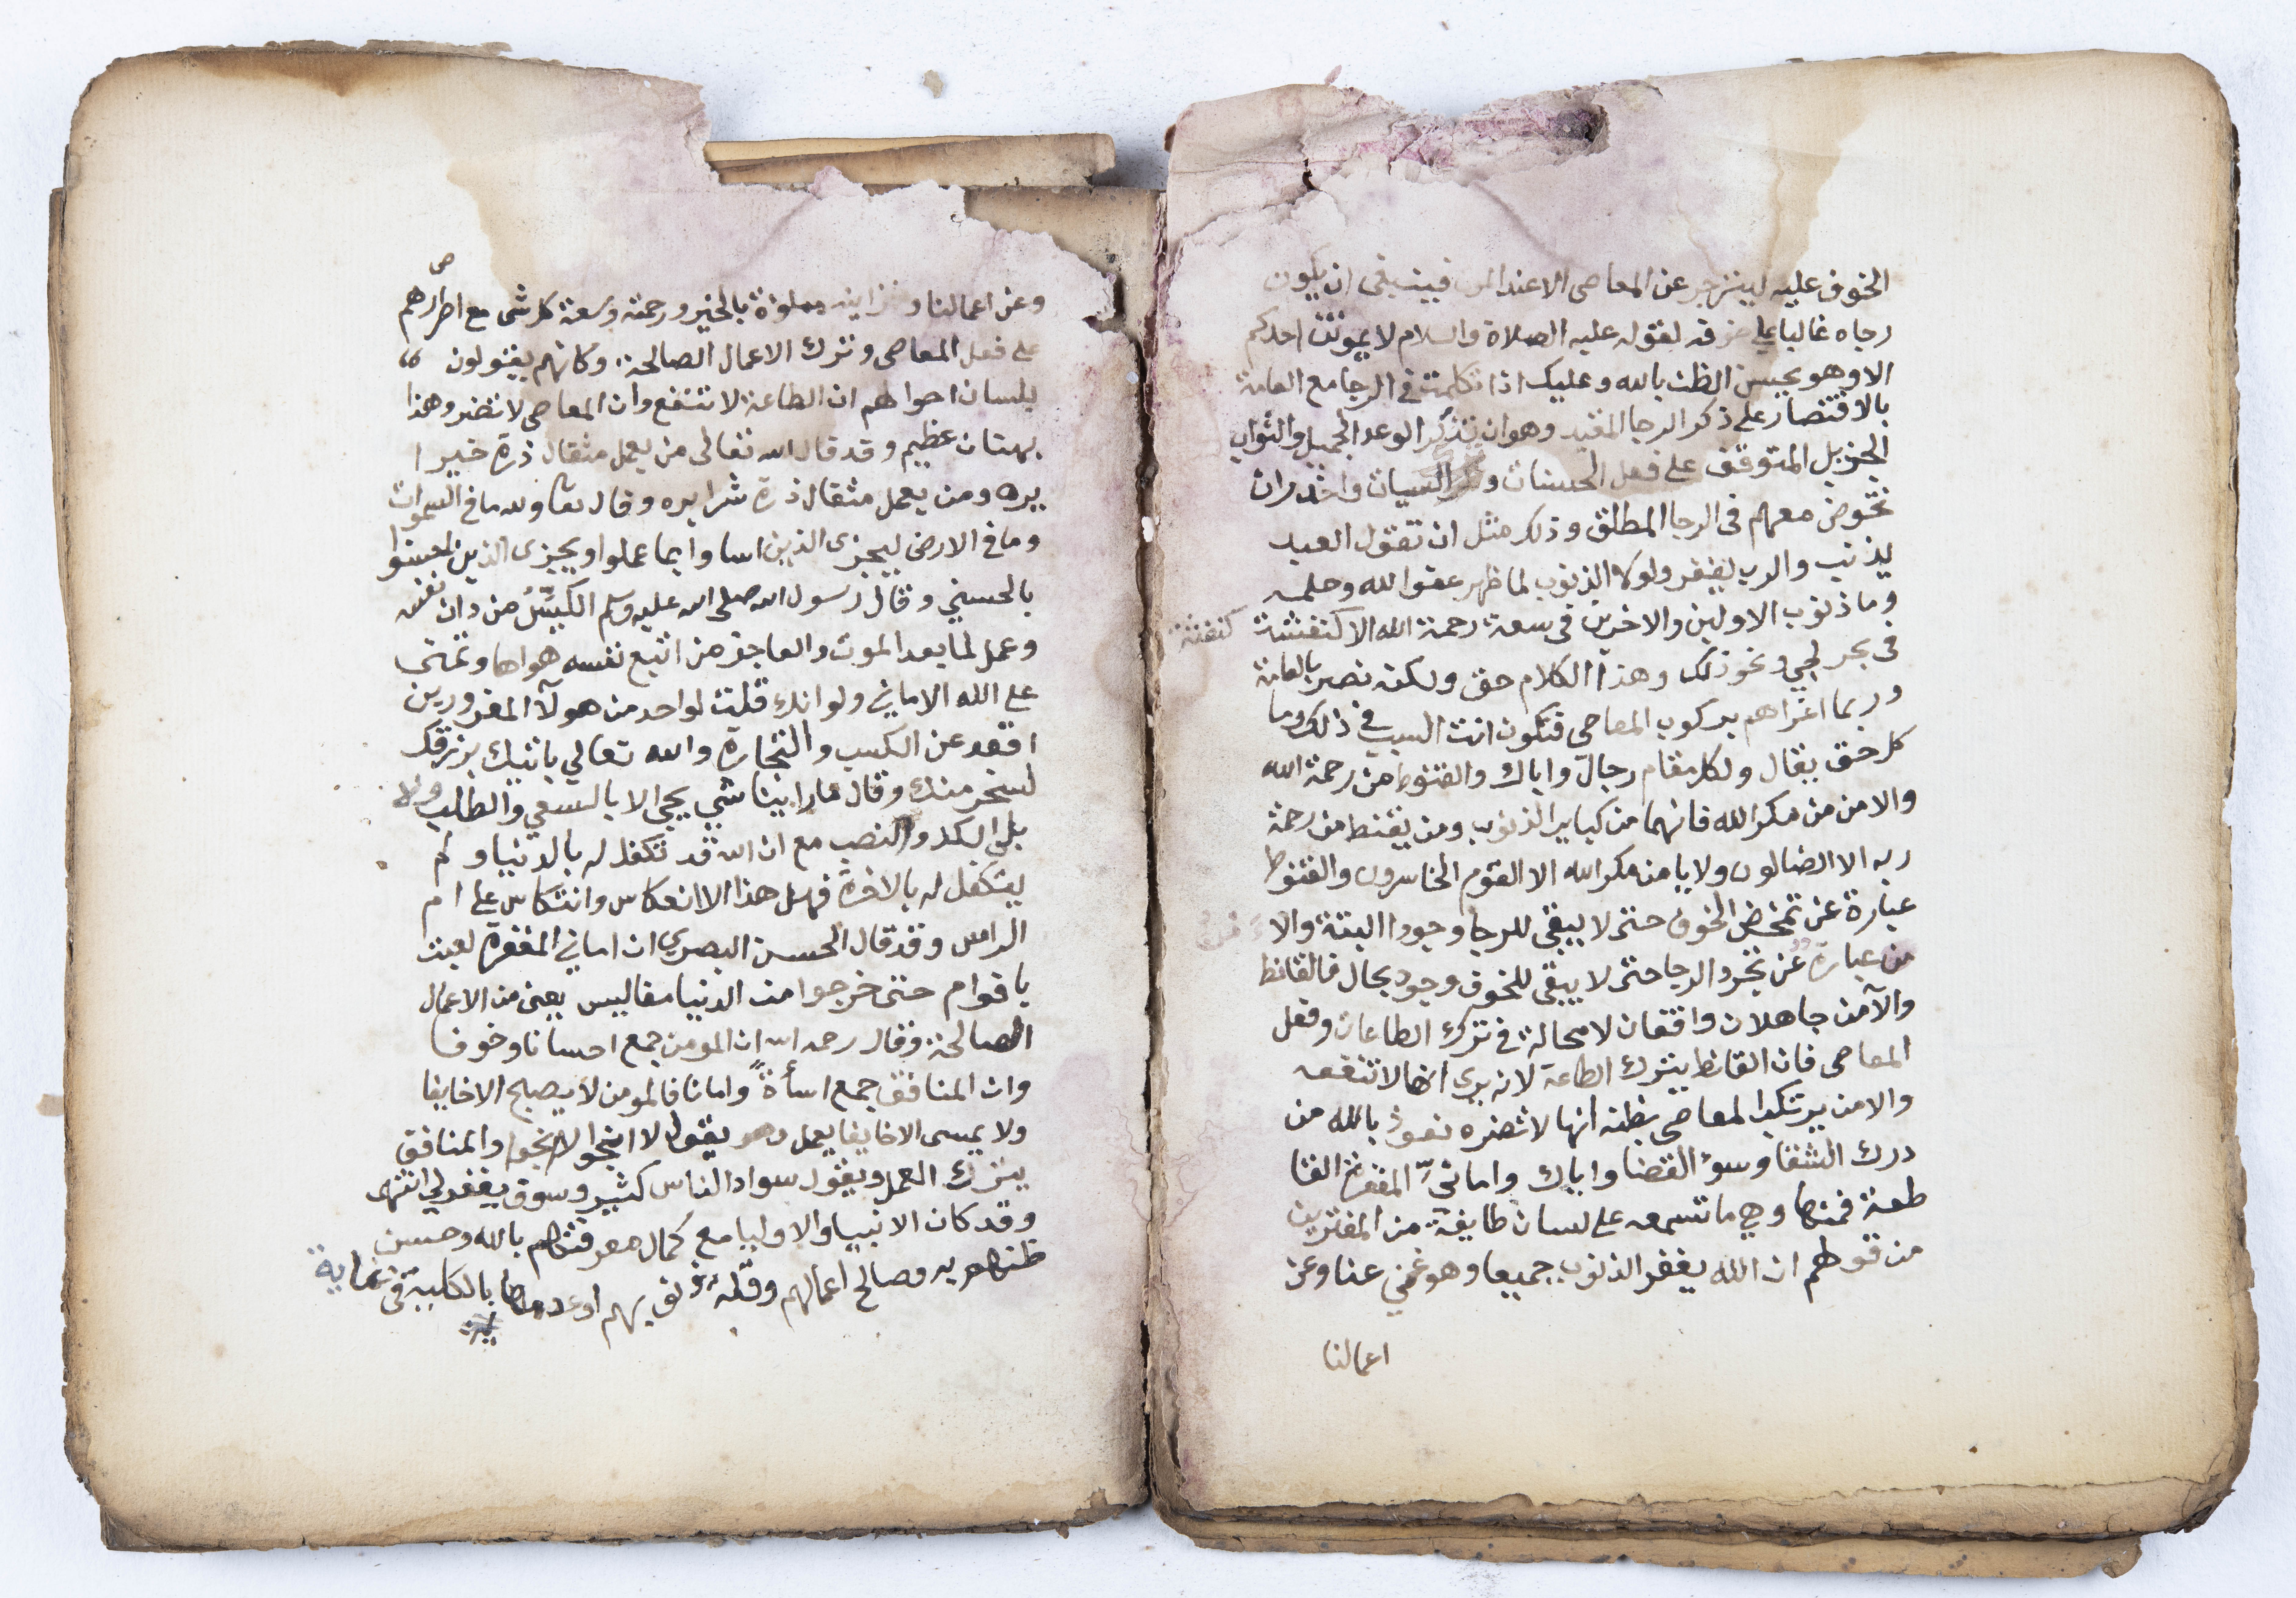 الخوف عليه لينزجر عن المعاصى الا عند المرض فينبغى ان يكون
رجاه غالبا على خوفه لقوله عليه الصلاة والسلام لا يموتن احدكم
الا وهو يحسن الظن بالله وعليك اذا تكلمت في الرجا مع العامة
بالاقتصار على ذكر الرجا المقيد وهو ان تذكر الوعد الجميل والثواب
الجزيل المتوقف على فعل الحسنات وترك السيات واحذر ان
تخوض معهم فى الرجا المطلق وذلك مثل ان تقول العبد
يذنب والرب يغفر ولولا الذنوب لما ظهر عفوا لله وحلمه
وما ذنوب الاولين والاخرين في سعة رحمة الله الا كنفشة كنفثة
فى بحر لجي ونحو ذلك وهذا الكلام حق ولكنه تضر بالعامة
وربما اغراهم بركوب المعاصى فتكون انت السبب في ذلك وما
كل حق يقال ولكل مقام رجال واياك والقنوط من رحمة الله
والامن من مكر الله فانهما من كباير الذنوب ومن يقنط من رحمة
ربه الا الضالون ولا يامن مكر الله الا القوم الخاسرون والقنوط
عبارة عن تمحض الخوف حتى لا يبقى للرجا وجودا البتة والا
من عبارة عن تجرد الرجا حتى لا يبقى للخوف وجود بحال فالقانط
والآمن جاهلان واقعان لا محالة في ترك الطاعات وفعل
المعاصى فان القانط يترك الطاعة لانه يرى انها لا تنفعه
والامن يرتكب المعاصى بظنه انها لا تضره نعوذ بالله من
درك الشقا وسوء القضا واياك واماني المغفرة القا
طعة فمنها وهي ما تسمعه على لسان طايفة من المغترين
من قولهم ان الله يغفر الذنوب جميعا وهو غني عنا وعن
اعمالنا
وعن اعمالنا وخزاينه مملوة بالخير ورحمته وسعة كل شى مع اصرارهم
على فعل المعاصى وترك الاعمال الصالحة وكانهم يقولون
بلسان احوالهم ان الطاعة لا تنفع وان المعاصى لا تضر وهذا
بهتان عظيم وقد قال الله تعالى من يعمل مثقال ذرة خيرا
يره ومن يعمل مثقال ذرة شرا يره وقال تعا ولله ما في السموات
وما في الارض ليجزى الذين اساوا بما عملوا ويجزى الذين احسنوا
بالحسني وقال رسول الله صلى الله عليه وسلم الكيّسُ من دان نفسه
وعمل لما بعد الموت والعاجز من اتبع نفسه هواها وتمنى
على الله الاماني ولو انك قلت لواحد من هولآ المغرورين
اقعد عن الكسب والتجارة والله تعالي ياتيك برزقك
لسخر منك وقال ما راينا شي يجي الا بالسعي والطلب
بلي الكد والنصب مع ان الله قد تكفل له بالدنيا ولم
يتكفل له بالاخرة فهل هذا الا انعكاس وانتكاس على ام
الراس وقد قال الحسن البصري ان اماني المغفرة لعبت
باقوام حتى خرجوا من الدنيا مفاليس يعنى من الاعمال
الصالحة وقال رحمه الله ان المومن جمع احسانا وخوفا
وان المنافق جمع اسأةً وامانا فالمومن لا يصبح الا خايفا
ولا يمسى الا خايفا يعمل وهو يقول لا انجوا لا انجوا والمنافق
يترك العمل ويقول سواد الناس كثير وسوف يغفر لي انتهى
وقد كان الانبيا والاوليا مع كمال معرفتهم بالله وحسن
ظنهم به وصالح اعمالهم وقلة ذنوبهم او عدمها بالكلية في غاية